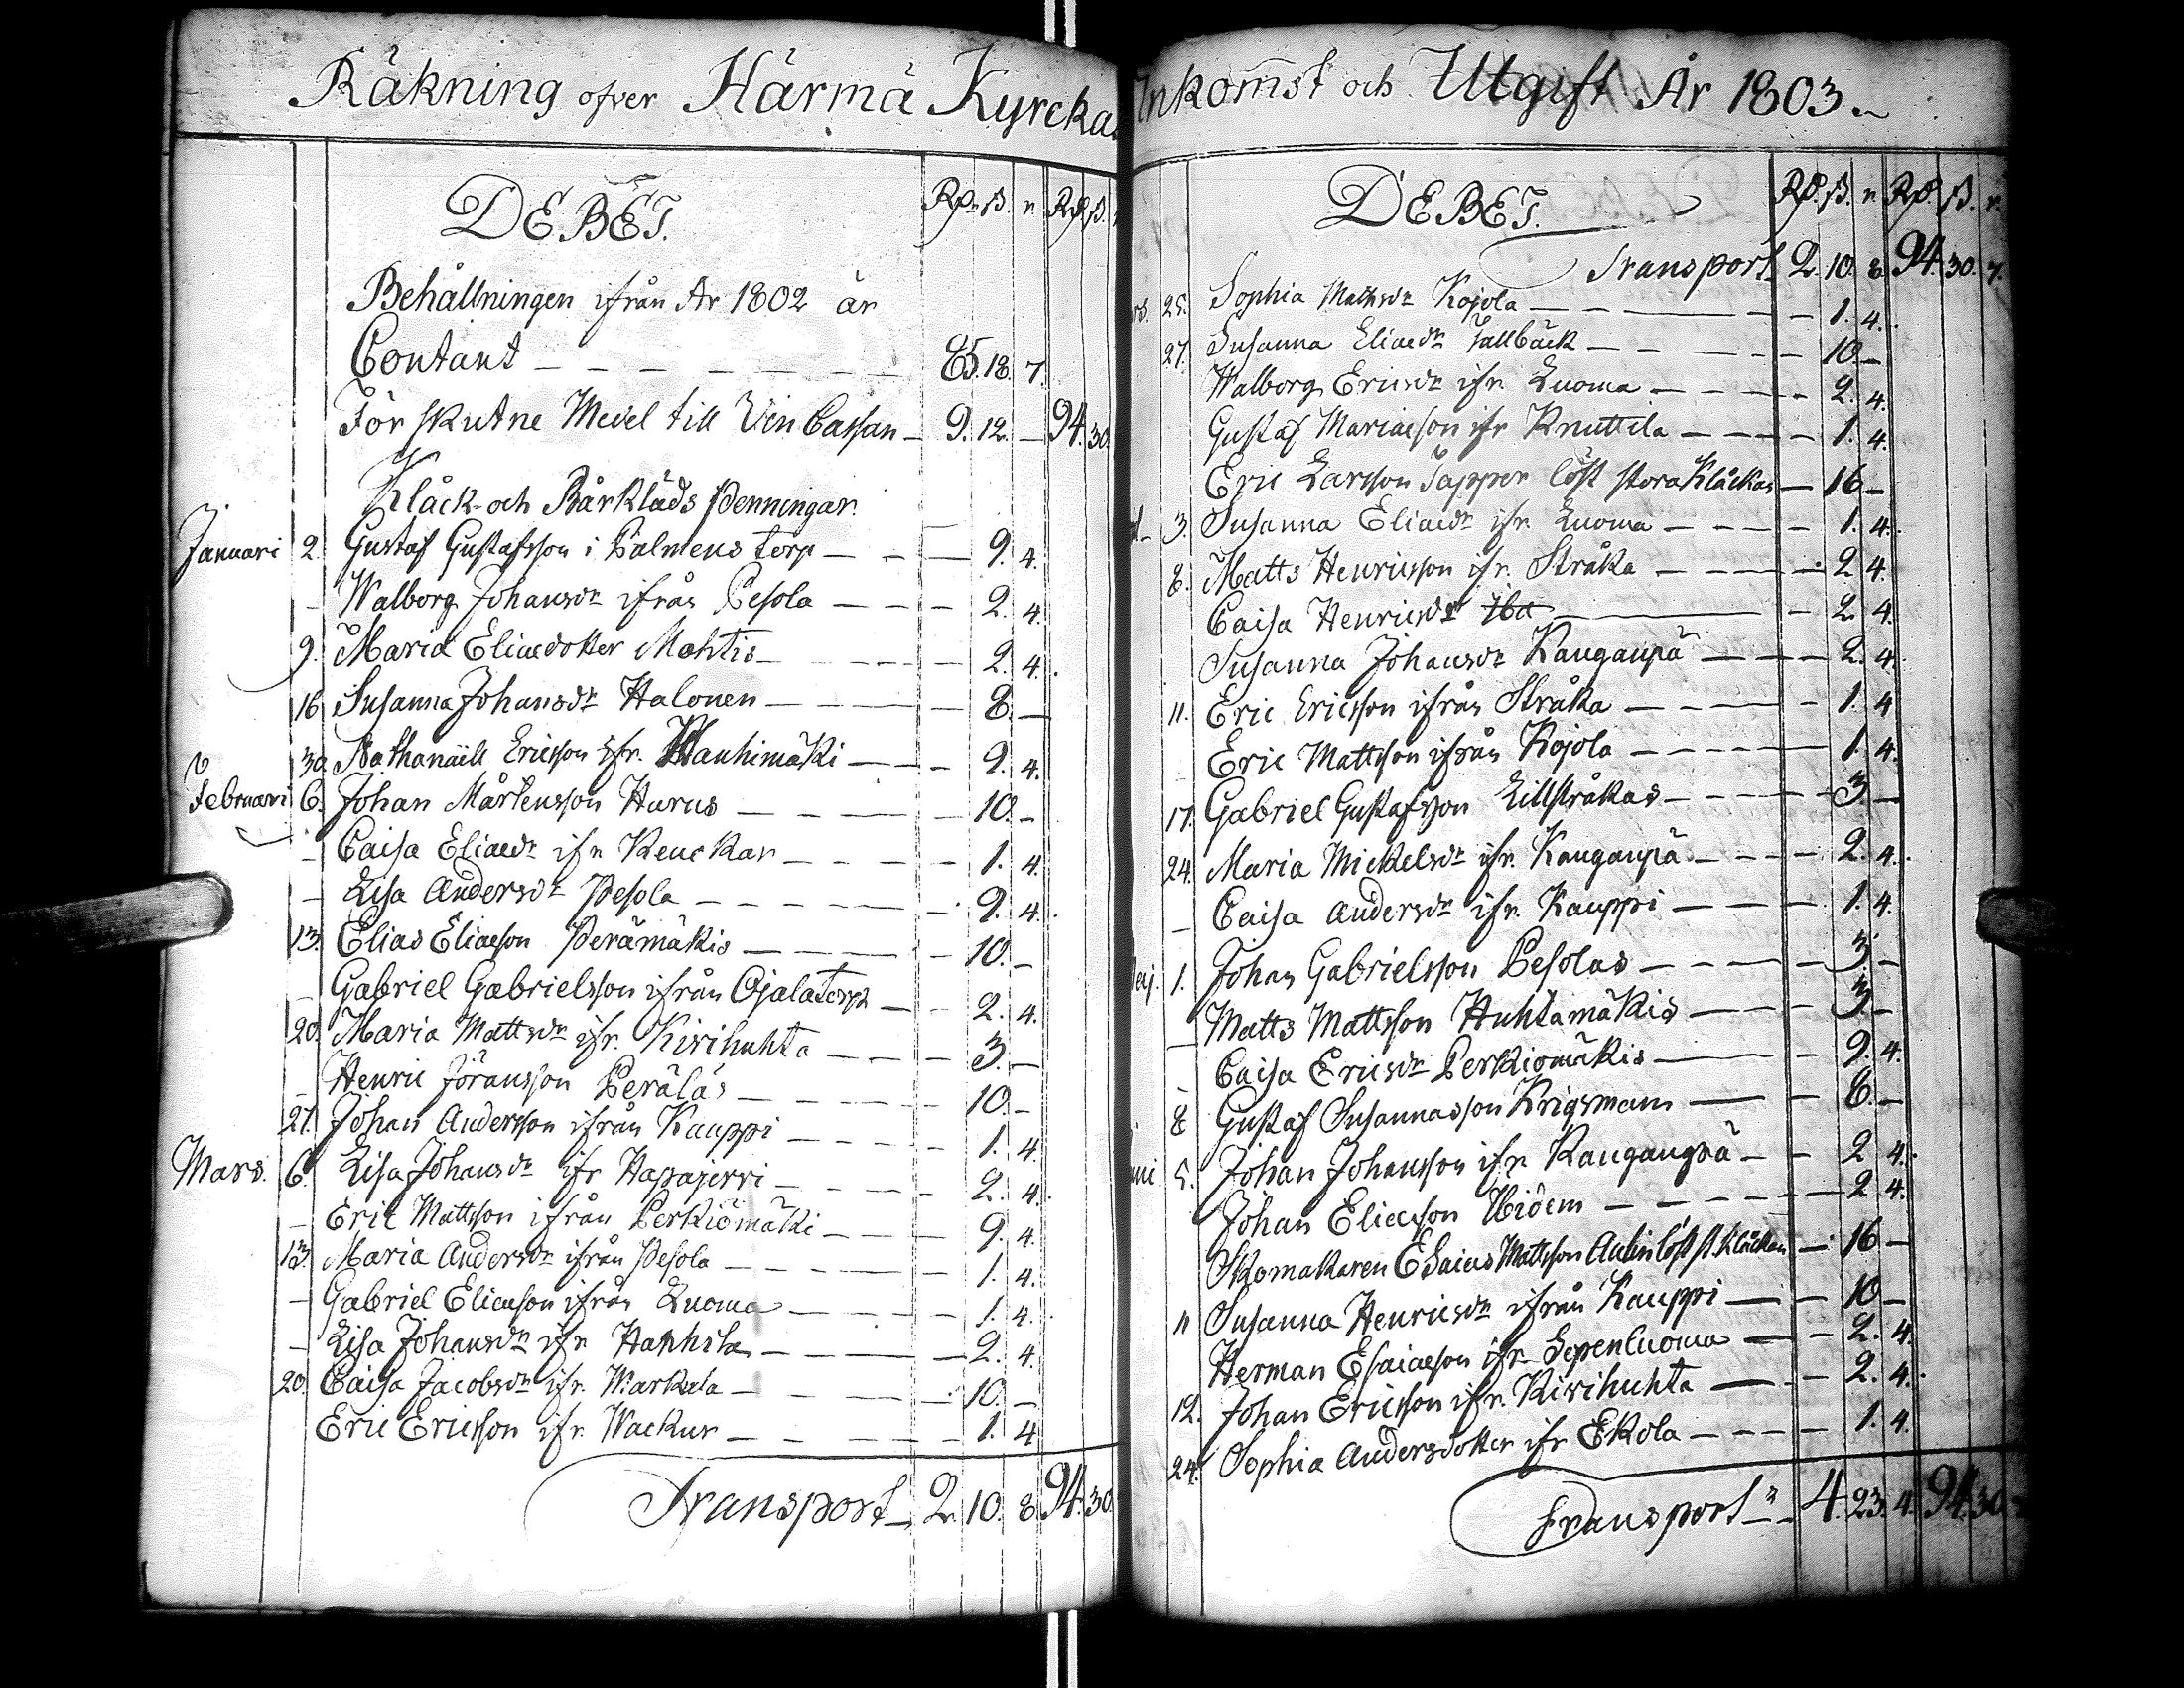 Räkning öfver Härmä Kyrckas
DEBET.
Rd. ß. r. Rd. ß.
Behållningen ifrån År 1802 är
Contant 85. 18. 7.
Förskutne Medel till Vin Cassan 9. 12. — 94. 30.
Klåck- och Bårkläds Penningar
Januari 2. Gustaf Gustafsson i Palmens torp — 9. 4.
— Walborg Johansdr ifrån Pesola — 2. 4.
9. Maria Eliaedotter Mahtis — 2. 4.
16 Susanna Johansdr Halonen — 8. —
30. Nathanaëll Ericsson ifr. Wanhimäki — 9. 4.
Februari 6. Johan Mårtensson Harus — 10. —
— Caisa Eliaedr ifr Keuckar — 1. 4.
— Lisa Andersdr Pesola — 9. 4.
13. Elias Eliaeson Perämäkis — 10. —
— Gabriel Gabrielsson ifrån Ojalatorp — 2. 4.
20. Maria Mattsdr ifr. Kivihuhta — 3. —
— Henric Jöransson Peräläs — 10. —
27. Johan Andersson ifrån Kauppi — 1. 4.
Mars. 6. Lisa Johansdr ifr Hapajervi — 2. 4.
— Eric Mattsson ifrån Perkiömäki — 9. 4.
13. Maria Andersdr ifrån Pesola — 1. 4.
— Gabriel Eliaeson ifrån Luoma — 1. 4.
— Lisa Johansdr ifr — 2. 4.
20. Caisa Jacobsdr ifr. Markula — 10. —
Eric Ericsson ifr. Wackur — 1. 4
Transport 2. 10. 8. 94. 30.
Inkomst och Utgift År 1803.
DEBET.
Rd. ß. r. Rd. ß. r.
Transport 2. 10. 8. 94. 30. 7.
25. Sophia Mathsdr Kojola — 1. 4.
27. Susanna Eliaedr Tallbäck — 10. —
Walborg Ericsdr ifr. Luoma — 2. 4.
Gustaf Mariaeson ifr Knuttila — 1. 4.
Eric Larsson Tapper löst stora Klåckan — 16 —
3. Susanna Eliaedr ifr. Luoma — 1. 4.
8. Matts Henricsson ifr. Stråka — 2 4.
Caisa Henricsdr — 2 4.
Susanna Johansdr Kangaupä — 2. 4.
11. Eric Ericsson ifrån Stråka — 1. 4
Eric Mattsson ifrån Kojola — 1. 4.
17. Gabriel Gustafsson Lillstråkas — 3. —
24. Maria Mickelsdr ifr. Kangaupä — 2. 4.
— Caisa Andersdr ifr. Kauppi — 1. 4.
Maj. 1. Johan Gabrielsson Pesolas — 3. —
— Matts Mattsson Huhtamäkis — 3. —
— Caisa Ericsdr Perkiomäkis — 9. 4.
8 Gustaf Susannasson Krigsmans — 8. —
5. Johan Johansson ifr. Kangaupä — 2 4.
Johan Eliaeson — 2 4.
Skomakaren Esaias Mattsson Aulin löst st. Klåckan — 16 —
11 Susanna Henricsdr ifrån Kauppi — 10 —
Herman Esaiaeson ifr. Sepenluoma — 2. 4.
12. Johan Ericsson ifr. Kivihuhta — 2. 4.
24. Sophia Andersdotter ifr Ekola — 1. 4.
Transport 4. 23. 4. 94. 30.